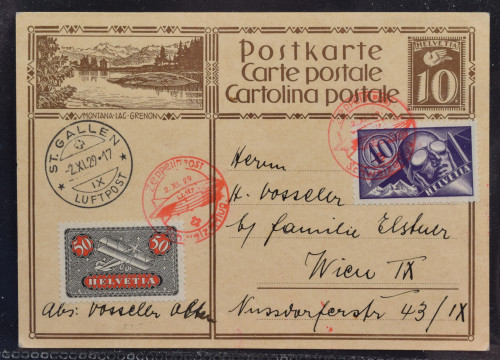 Postkarte
Carte postale
Cartolina postale
HELVETIA
10
MONTANA-LAC-GRENON
ST. GALLEN
-2.XI.29.-17
IX
LUFTPOST
ZEPPELINPOST
2.XI.29
40
HELVETIA
50 50
HELVETIA
Herrn
H. Vosseler
b/ familie Elstner
Wien IX
Nussdorferstr 43/IX
Abs: Vosseler